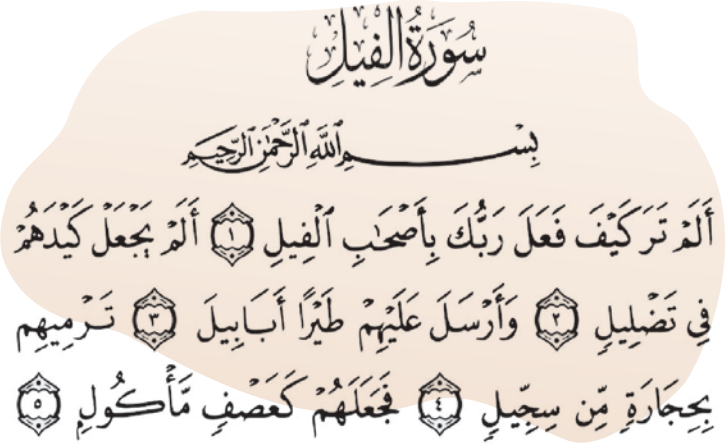 سُورَةُ الْفِيلِ
بِسْمِ اللَّهِ الرَّحْمَٰنِ الرَّحِيمِ
أَلَمْ تَرَ كَيْفَ فَعَلَ رَبُّكَ بِأَصْحَٰبِ الْفِيلِ ١ أَلَمْ يَجْعَلْ كَيْدَهُمْ
فِي تَضْلِيلٍ ٢ وَأَرْسَلَ عَلَيْهِمْ طَيْرًا أَبَابِيلَ ٣ تَرْمِيهِم
بِحِجَارَةٍ مِّن سِجِّيلٍ ٤ فَجَعَلَهُمْ كَعَصْفٍ مَّأْكُولٍ ٥